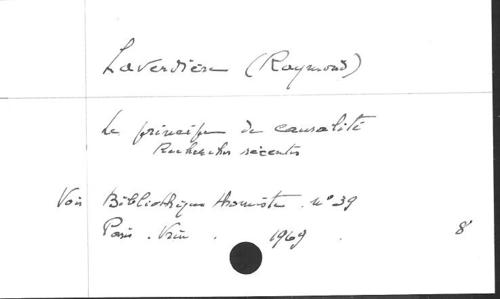 Laverdière (Raymond)
Le principe de causalité
Recherches récentes
Voir Bibliothèque thomiste. n° 39
Paris. Vrin. 1969. 8°